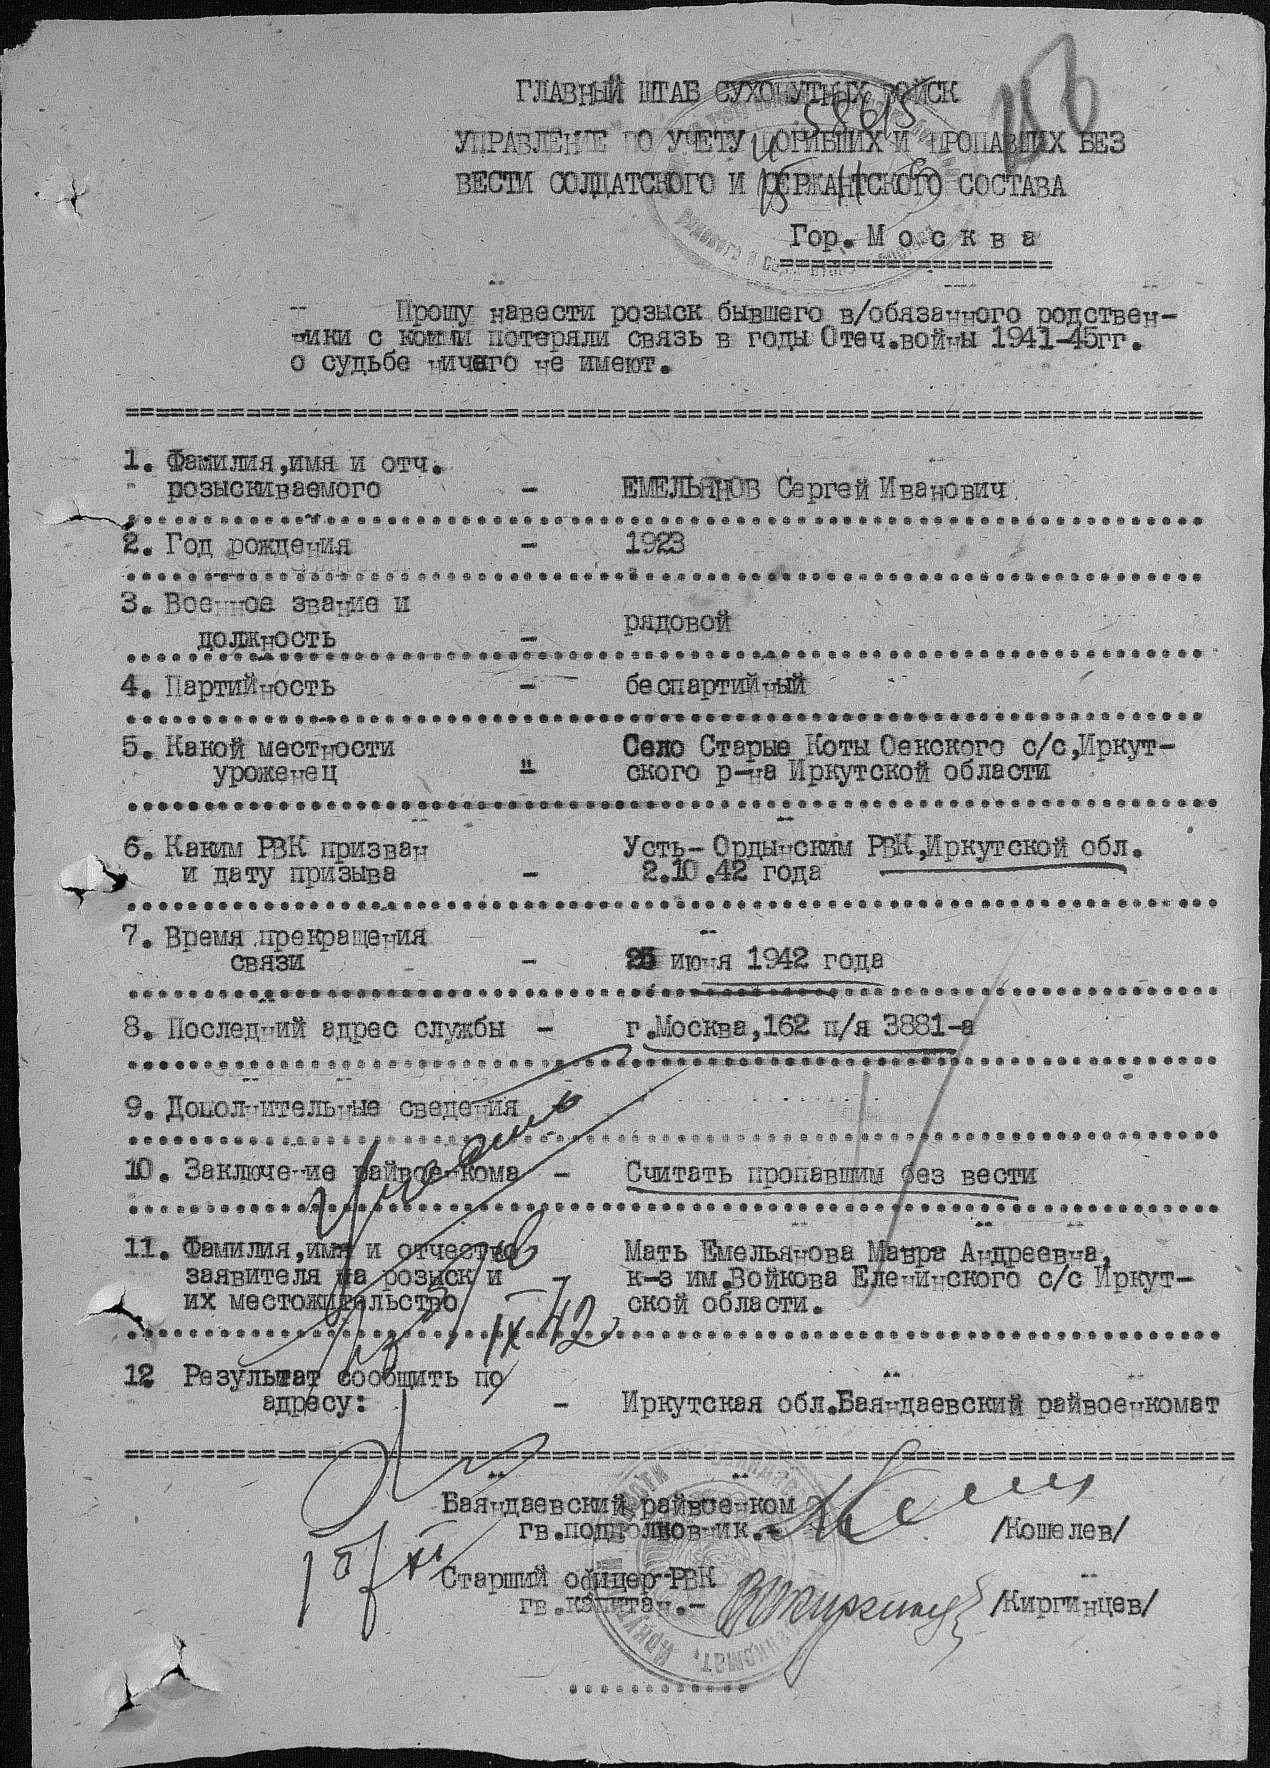 ГЛАВНЫЙ ШТАБ СУХОПУТНЫХ ВОЙСК
УПРАВЛЕНИЕ ПО УЧЕТУ ПОГИБШИХ И ПРОПАВШИХ БЕЗ
ВЕСТИ СОЛДАТСКОГО И СЕРЖАНТСКОГО СОСТАВА
Гор. М о с к в а
==================
Прошу навести розыск бывшего в/обязанного родствен-
ники с коими потеряли связь в годы Отеч.войны 1941-45гг.
о судьбе ничего не имеют.
1. Фамилия,имя и отч.
розыскиваемого - ЕМЕЛЬЯНОВ Сергей Иванович
2. Год рождения - 1923
3. Военное звание и
должность - рядовой
4. Партийность - беспартийный
5. Какой местности Село Старые Коты Оекского с/с,Иркут-
уроженец " ского р-на Иркутской области
6. Каким РВК призван Усть-Ордынским РВК,Иркутской обл.
и дату призыва - 2.10.42 года
7. Время прекращения
связи - 25 июня 1942 года
8. Последний адрес службы - г.Москва,162 п/я 3881-а
9. Дополнительные сведения
10. Заключение райвоенкома - Считать пропавшим без вести
11. Фамилия,имя и отчество Мать Емельянова Мавра Андреевна,
заявителя на розыск и к-з им.Войкова Еленинского с/с Иркут-
их местожительство ской области.
12 Результат сообщить по
адресу: - Иркутская обл.Баяндаевский райвоенкомат
Баяндаевский райвоенком
гв.подполковник.- /Кошелев/
Старший офицер РВК
гв.капитан.- /Киргинцев/